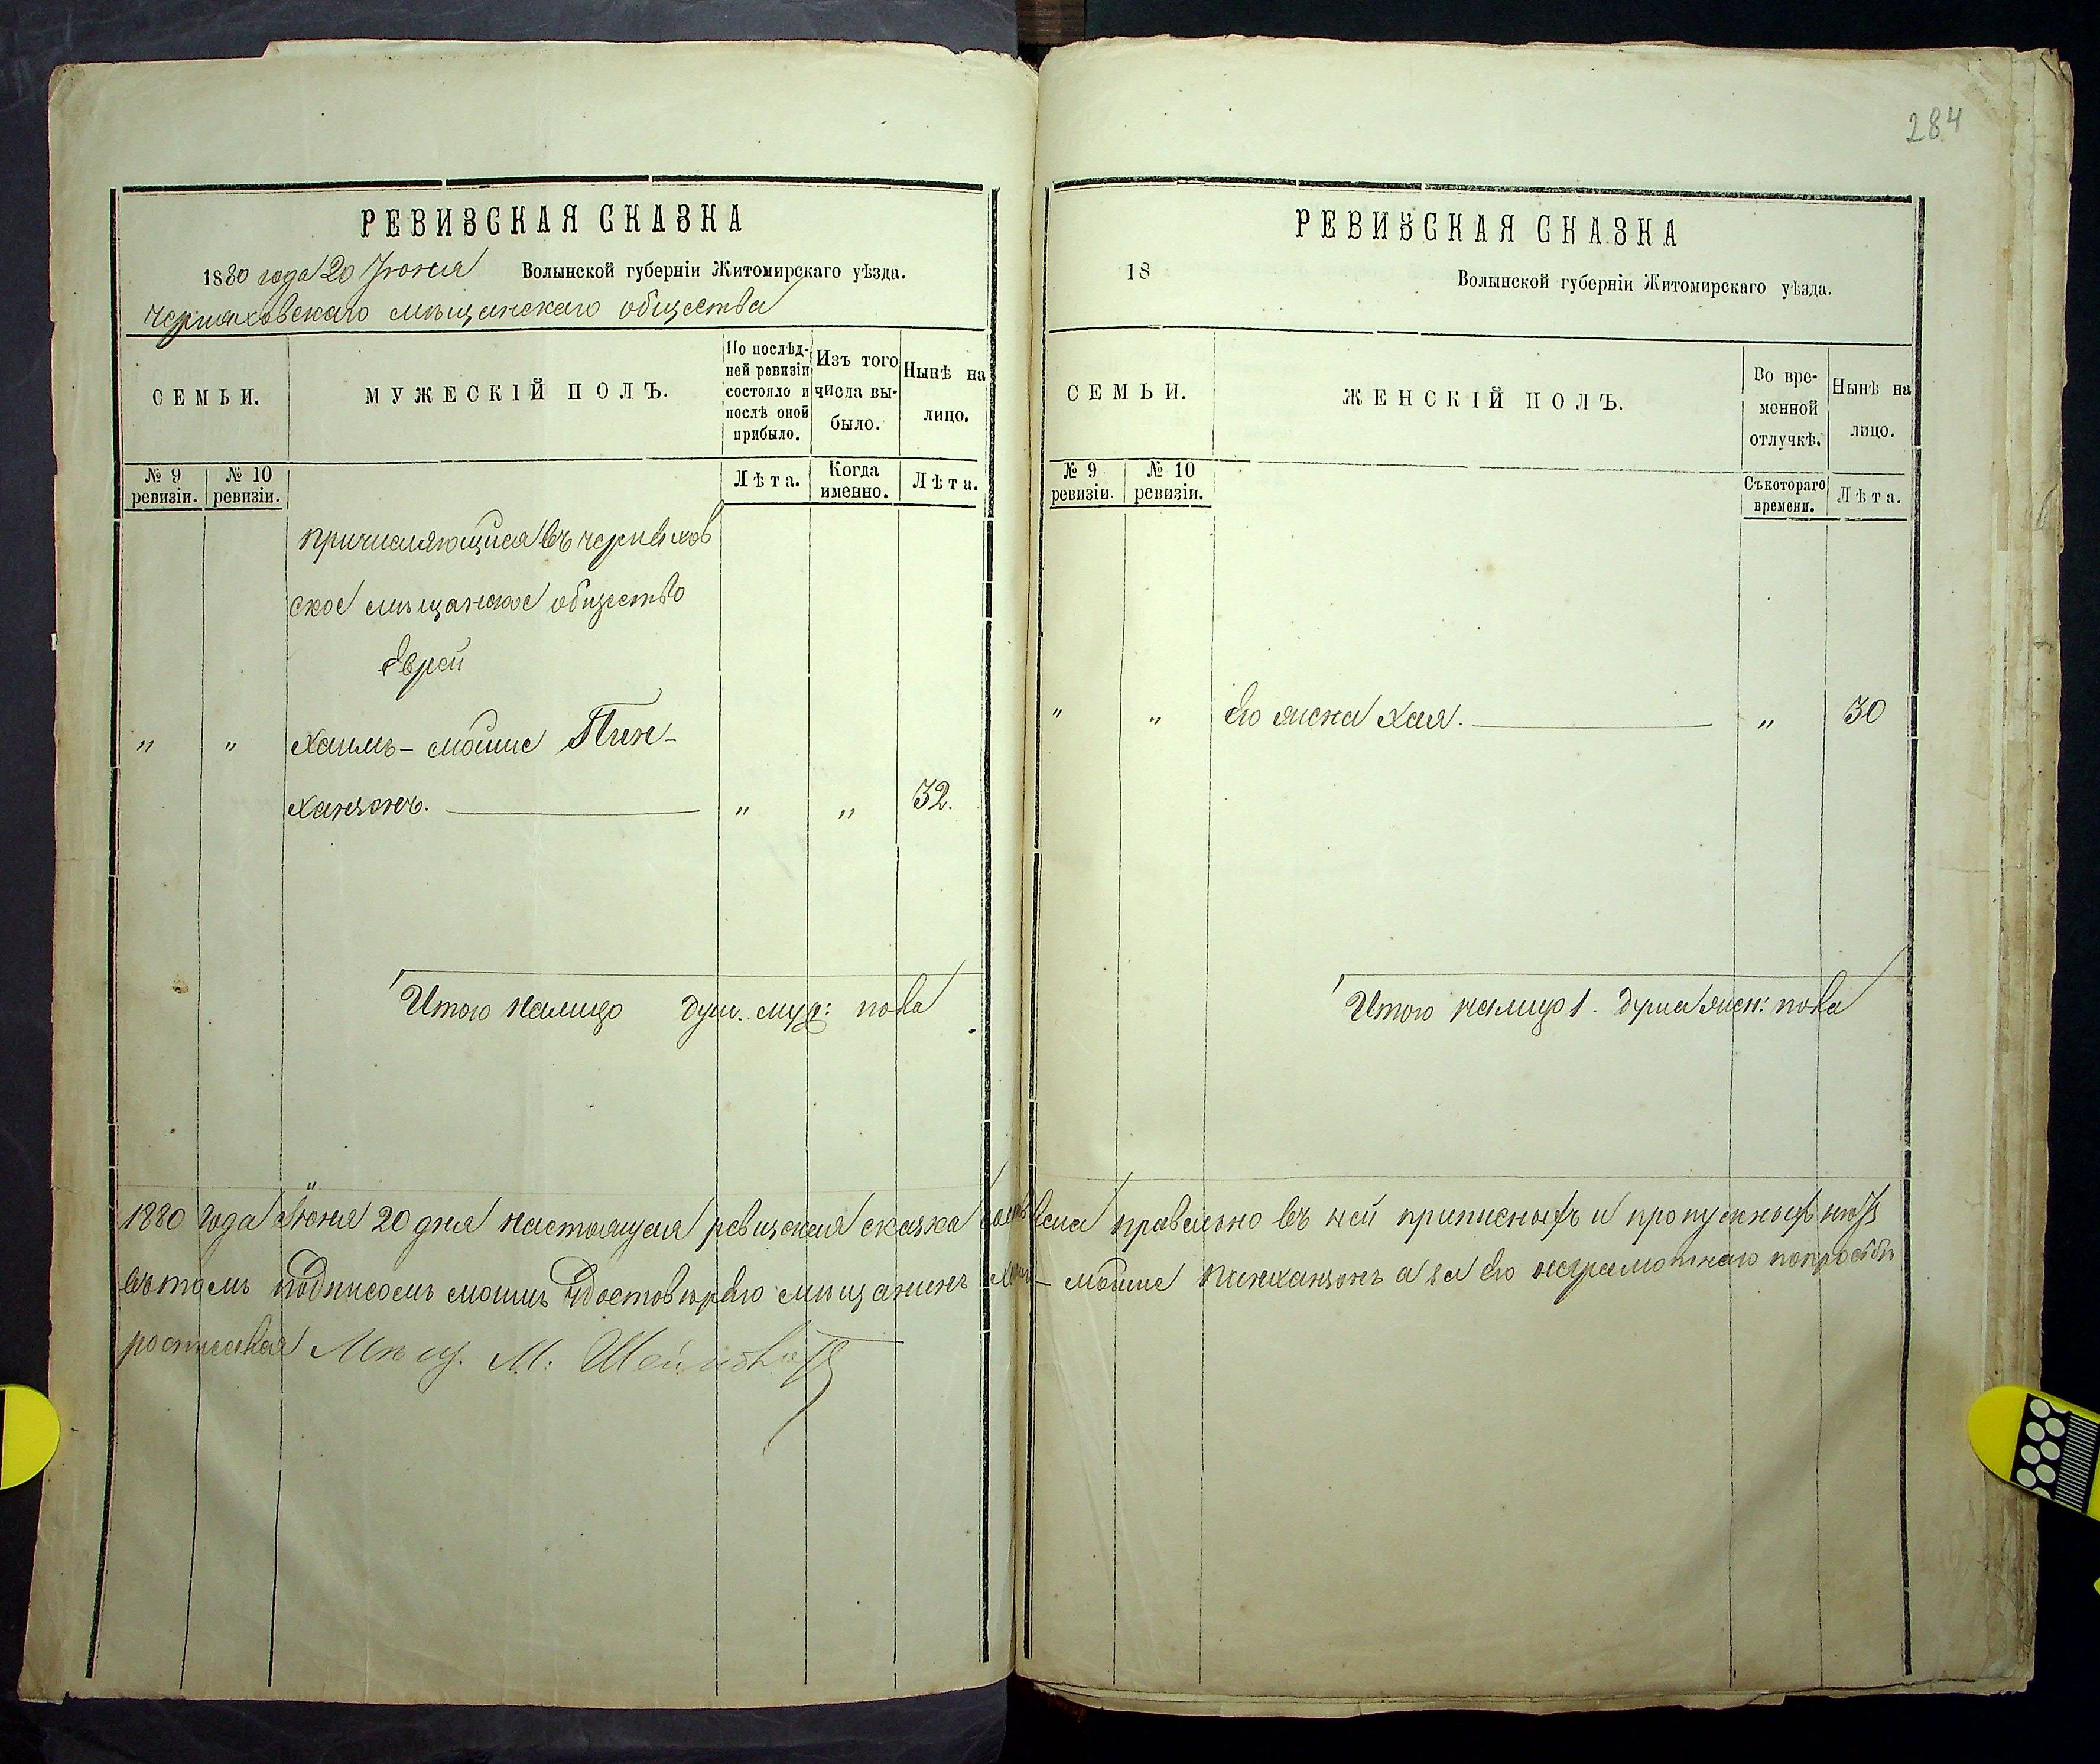 РЕВИЗСКАЯ СКАЗКА
1880 года 20 Іюня Волынской губерніи Житомирскаго уѣзда.
Черняховскаго мѣщанскаго общества
СЕМЬИ.
МУЖЕСКІЙ ПОЛЪ.
По послѣд-
ней ревизіи
состояло и
послѣ оной
прибыло.
Изъ того
числа вы-
было.
Нынѣ на
лицо.
№ 9
ревизіи.
№ 10
ревизіи.
Лѣта.
Когда
именно.
Лѣта.
причисляющися въ черняхов
ское мѣщанское общество
Еврей
" " Хаимъ-мошие Пин-
ханзонъ. " " 32.
Итого налицо душ. муж: пола
284
РЕВИЗСКАЯ СКАЗКА
18 Волынской губерніи Житомирскаго уѣзда.
СЕМЬИ.
ЖЕНСКІЙ ПОЛЪ.
Во вре-
менной
отлучкѣ.
Нынѣ на
лицо.
№ 9
ревизіи.
№ 10
ревизіи.
Съкотораго
времени.
Лѣта.
" " его жена Хая. " 30
Итого налицо 1. душа жен: пола
1880 года Іюня 20 дня настоящая ревизская сказка правельно въ ней приписныхъ и пропускныхъ нѣтъ
въ томъ подписомъ моимъ удостовѣряю мѣщанинъ Хаим-мошие Пинханзонъ а за его неграмотнаго попросьби
росписался Мѣщ. М: